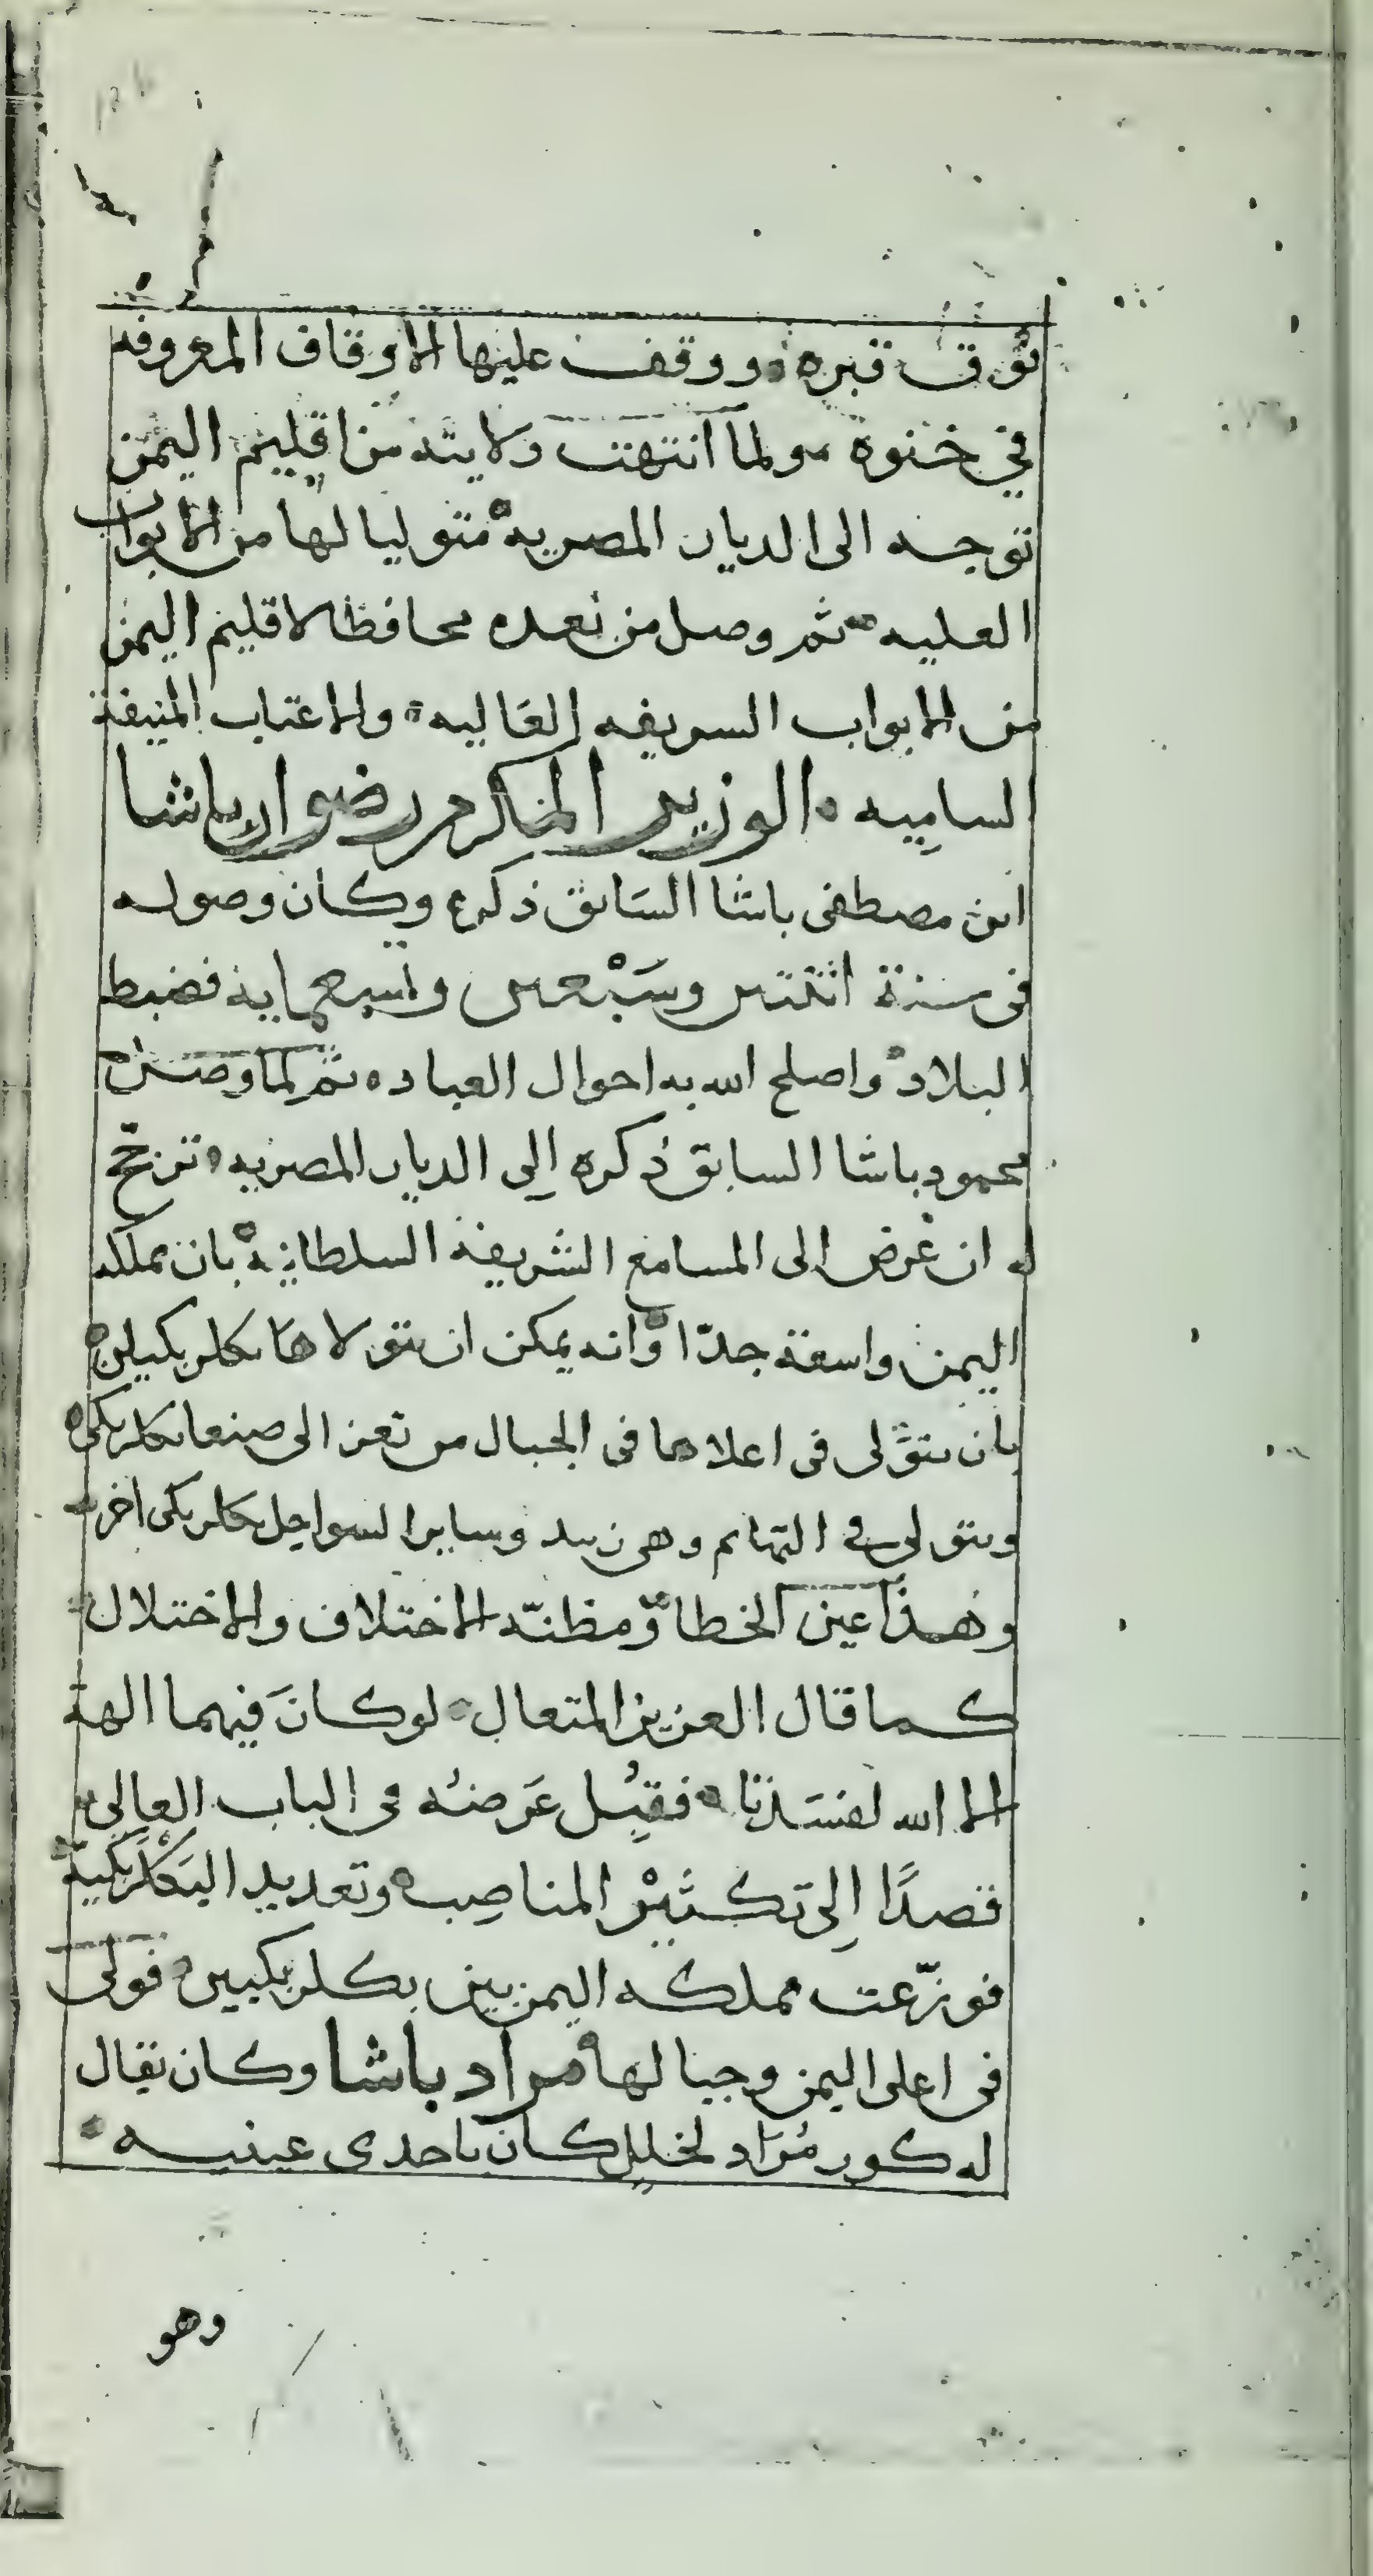 فوق قبره ووقف عليها الاوقاف المعروفه
في خنوه ولما انتهت ولايته من اقليم اليمن
توجه الى الديار المصريه متوليا لها من الابواب
العليه ثم وصل من بعده محافظا لاقليم اليمن
من الابواب الشريفه العاليه والاعتاب المنيفة
الساميه الوزير المكرم رضوان باشا
ابن مصطفى باشا السابق ذكره وكان وصوله
فى سنة اثنتين وسبعين وتسعمايه فضبط
البلاد واصلح الله به احوال العباد ثم لما وصل
محمود باشا السابق ذكره الى الديار المصريه ترجح
له ان عرض الى المسامع الشريفة السلطانية بان مملكه
اليمن واسعة جدّا وانه يمكن ان يتولاها بكلربكيان
بان يتولى فى اعلاها فى الجبال من تعز الى صنعا بكلربكى
ويتولى في التهايم وهى زبيد وساير السواحل بكلربكى اخر
وهذا عين الخطا ومظنّه الاختلاف والاختلال
كما قال العزيز المتعال لو كانَ فيهما الهة
الا الله لفسَدَتا فقبِل عَرضهُ فى الباب العالي
قصدًا اِلى تكثيْر المناصِب وتعديد البَكْلَربَكيّة
فوزّعت مملكه اليمن بين بكلربكيين فولى
فى اعلى اليمن وجبالها مراد باشا وكان يقال
له كور مُرَاد لخلل كان باحدى عينيه
وهو